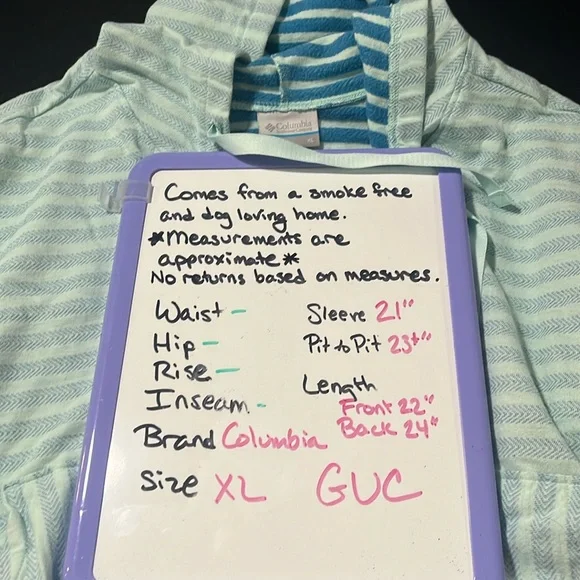 Columbia
Comes from a smoke free
and dog loving home.
*Measurements are
approximate*
No returns based on measures.
Waist -
Sleeve 21"
Hip -
Pit to Pit 23+"
Rise -
Length
Inseam -
Front 22"
Back 24"
Brand Columbia
Size XL
GUC